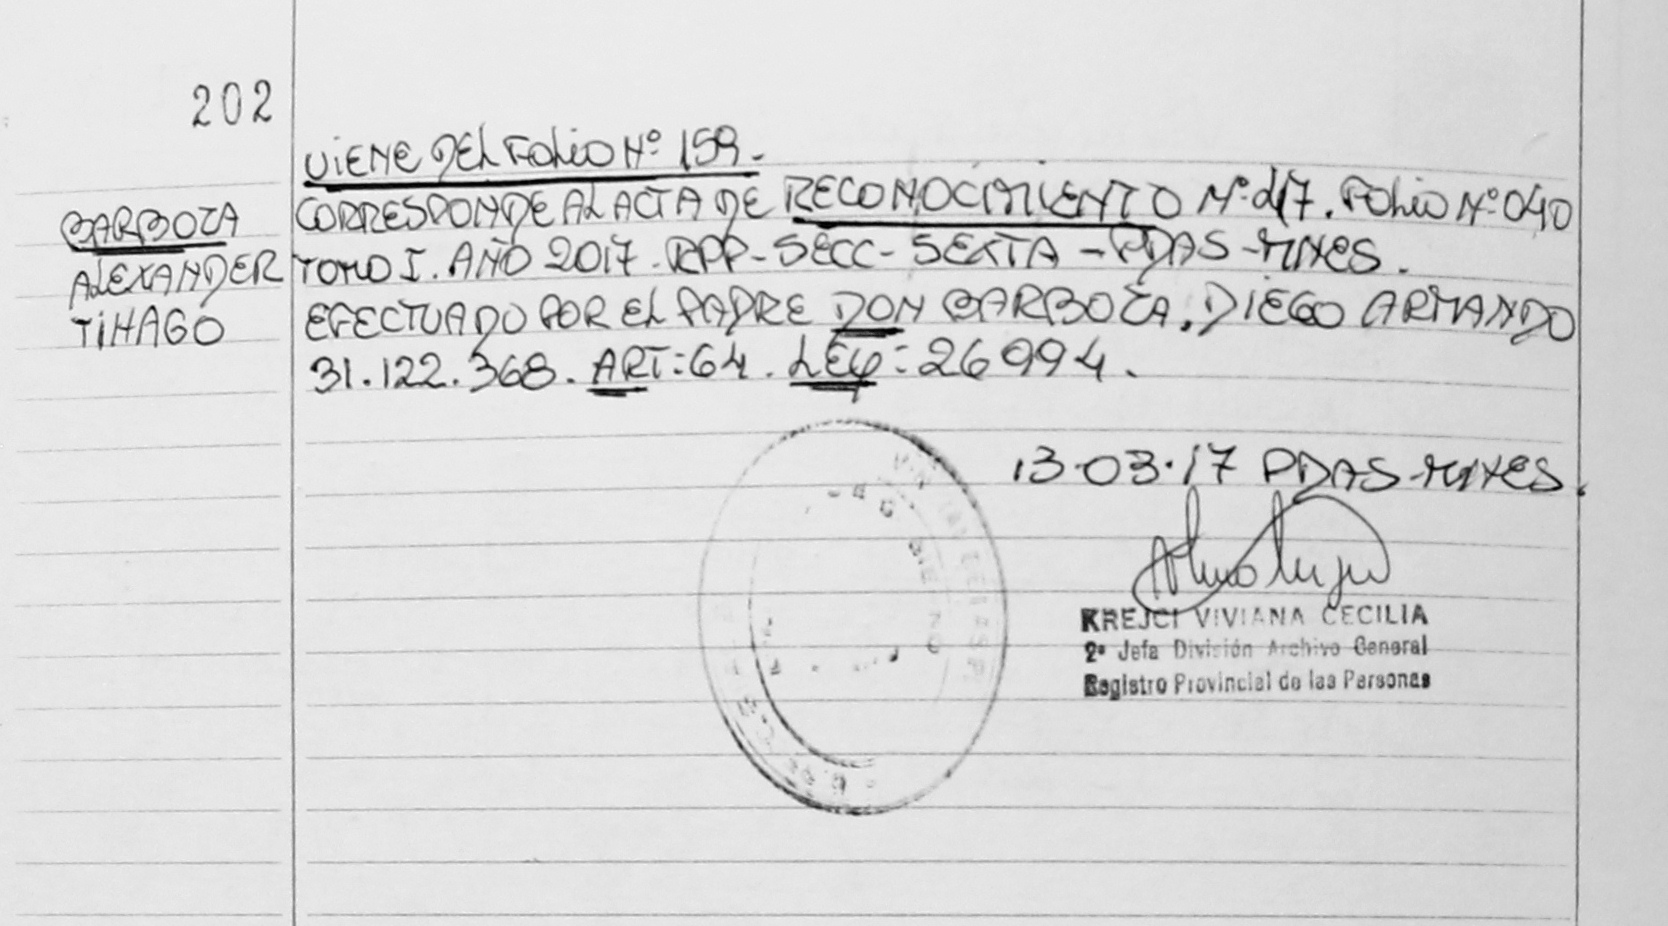 202
VIENE DEL FOLIO Nº 159.-
BARBOZA
ALEXANDER
TIHAGO
CORRESPONDE AL ACTA DE RECONOCIMIENTO Nº 417. FOLIO Nº 040
TOMO I. AÑO 2017. RPP- SECC- SEXTA - PDAS-MNES.
EFECTUADO POR EL PADRE DON BARBOZA, DIEGO ARMANDO
31.122.368. ART: 64. LEY: 26994.
13.03.17 PDAS-MNES.
KREJCI VIVIANA CECILIA
2º Jefa División Archivo General
Registro Provincial de las Personas